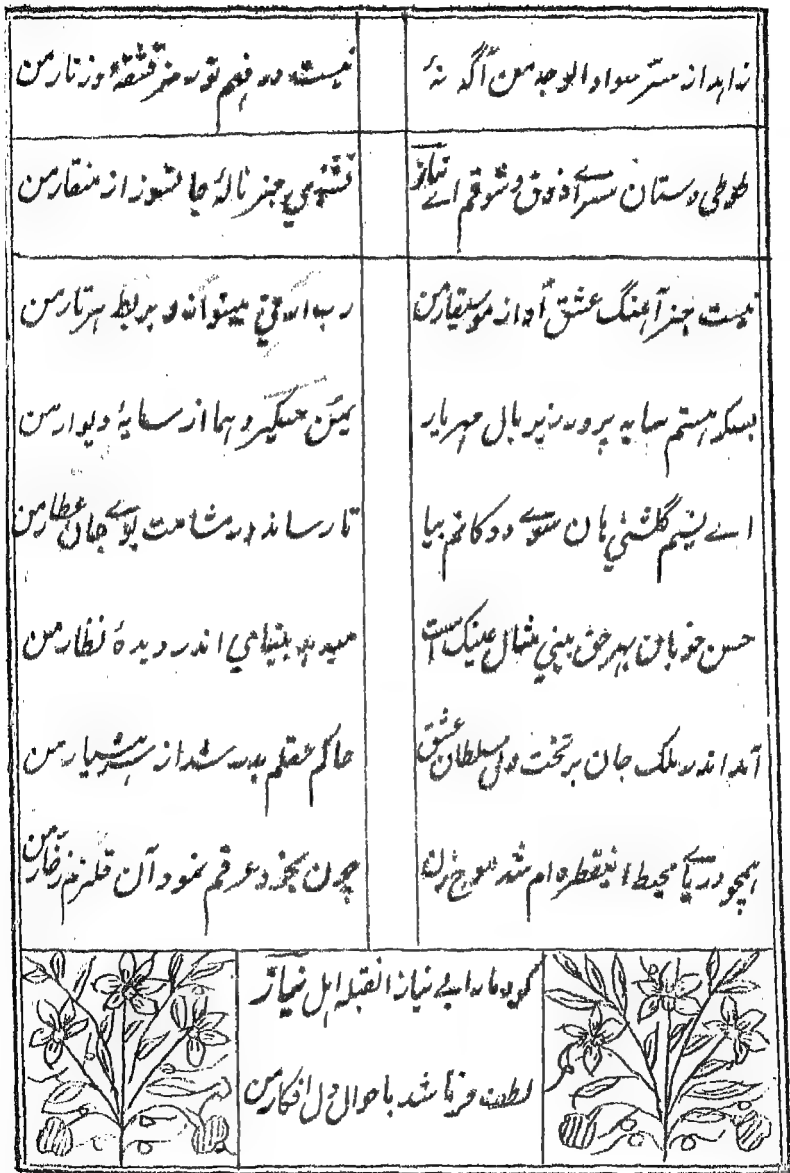 زاهد از سر سواد الوجه من آگه نۀ
نیست در فهم تو رمز قشقۀ و زنار من
طوطی دستان سراے ذوق و شوقم اے نیاز
نشنوی جز نالۀ جانسوز از منقار من
نیست جز آهنگ عشق آواز موسیقار من
رب ارنی میتواند بربط هر تار من
بسکه هستم سایه پرور زیر بال مهر یار
یمن میگیرد هما از سایۀ دیوار من
اے نسیم گلشنی هان سوے دوکانم بیا
تا رساند در مشامت بوے جان عطار من
حسن خوبان بهر حق بینی مثال عینک است
میدهد بینائی اندر دیدۀ نظار من
آمد اندر ملک جان بر تخت دل سلطان عشق
حاکم عقلم بدر شد از سر هشیار من
همچو دریاے محیط این قطره ام شد موج زن
چون بخود غرقم نمود آن قلزم زخار من
کرد ما را بے نیاز آن قبلۀ اهل نیاز
لطف فرما شد باحوال دل افکار من